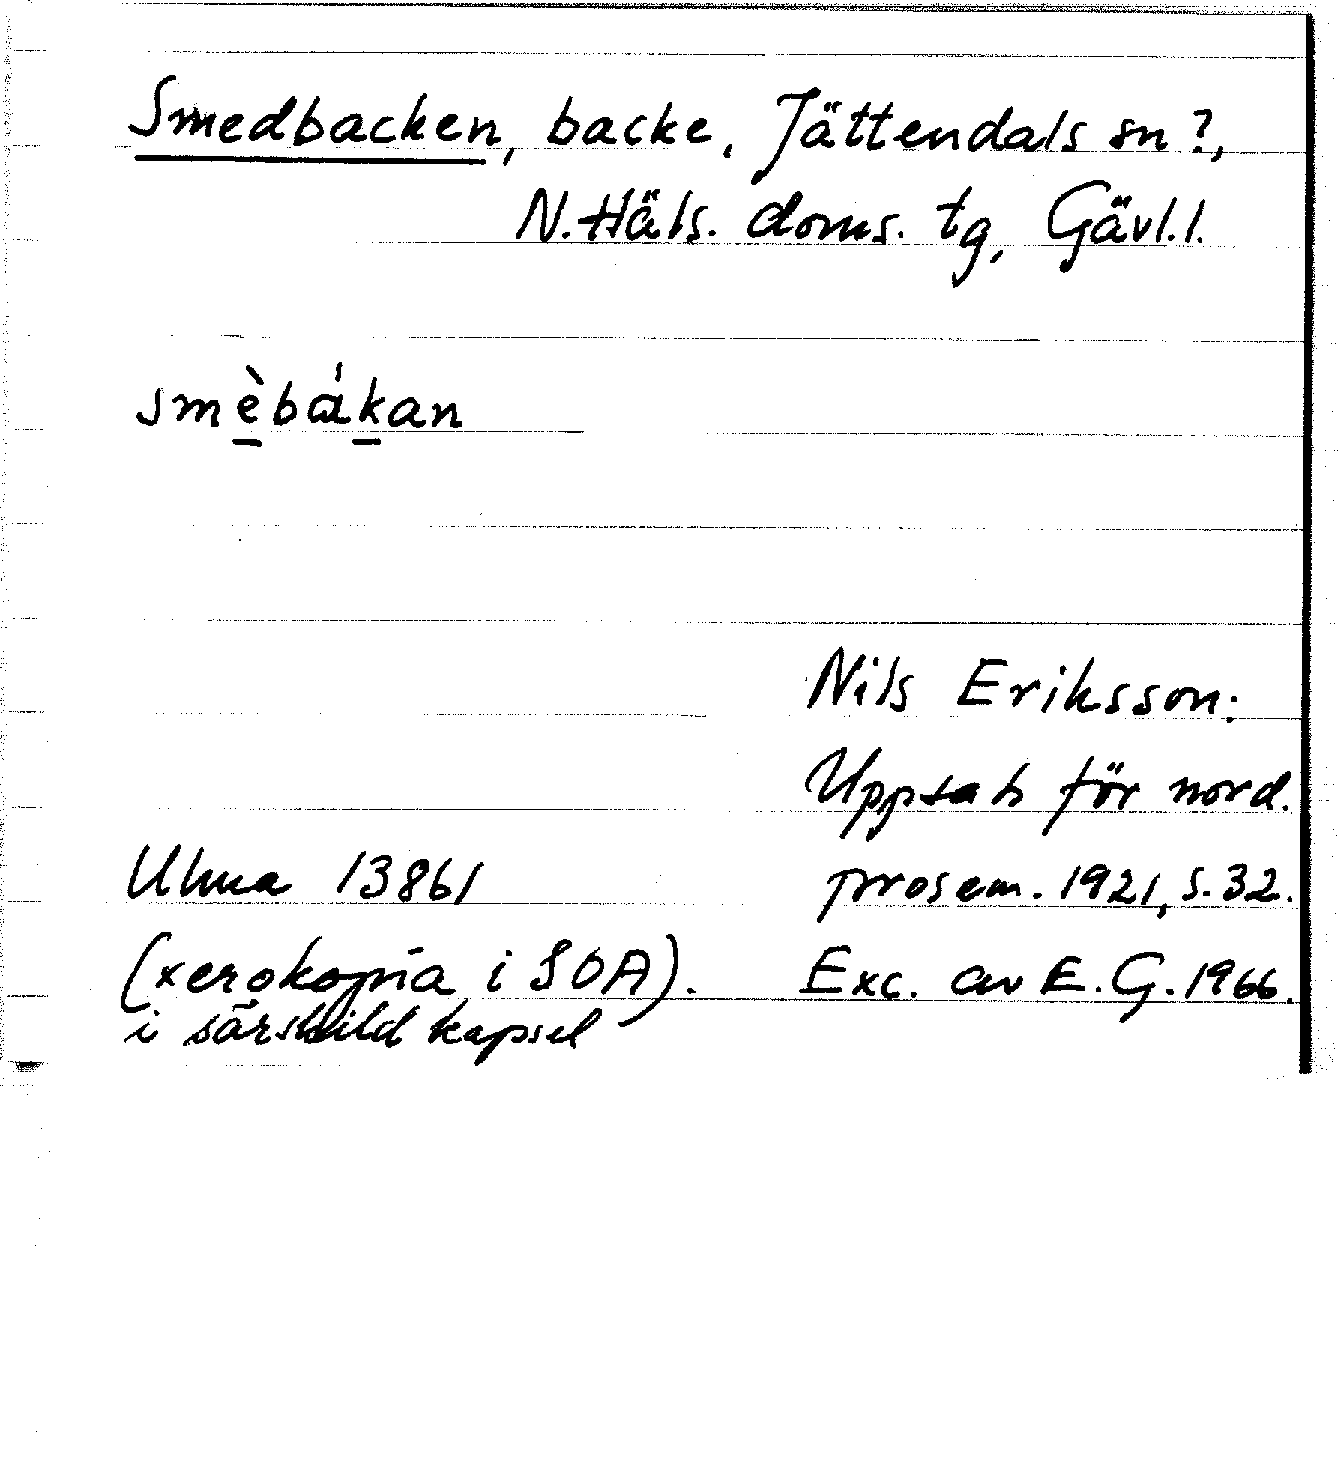 Smedbacken, backe, Jättendals sn?,
N. Häls. doms. tg, Gävl. l.
smè̲bákˈ̲an
Nils Eriksson:
Uppsats för nord.
Ulma 13861 prosem. 1921, s. 32.
(xerokopia i SOA). Exc. av E. G. 1966.
i särskild kapsel